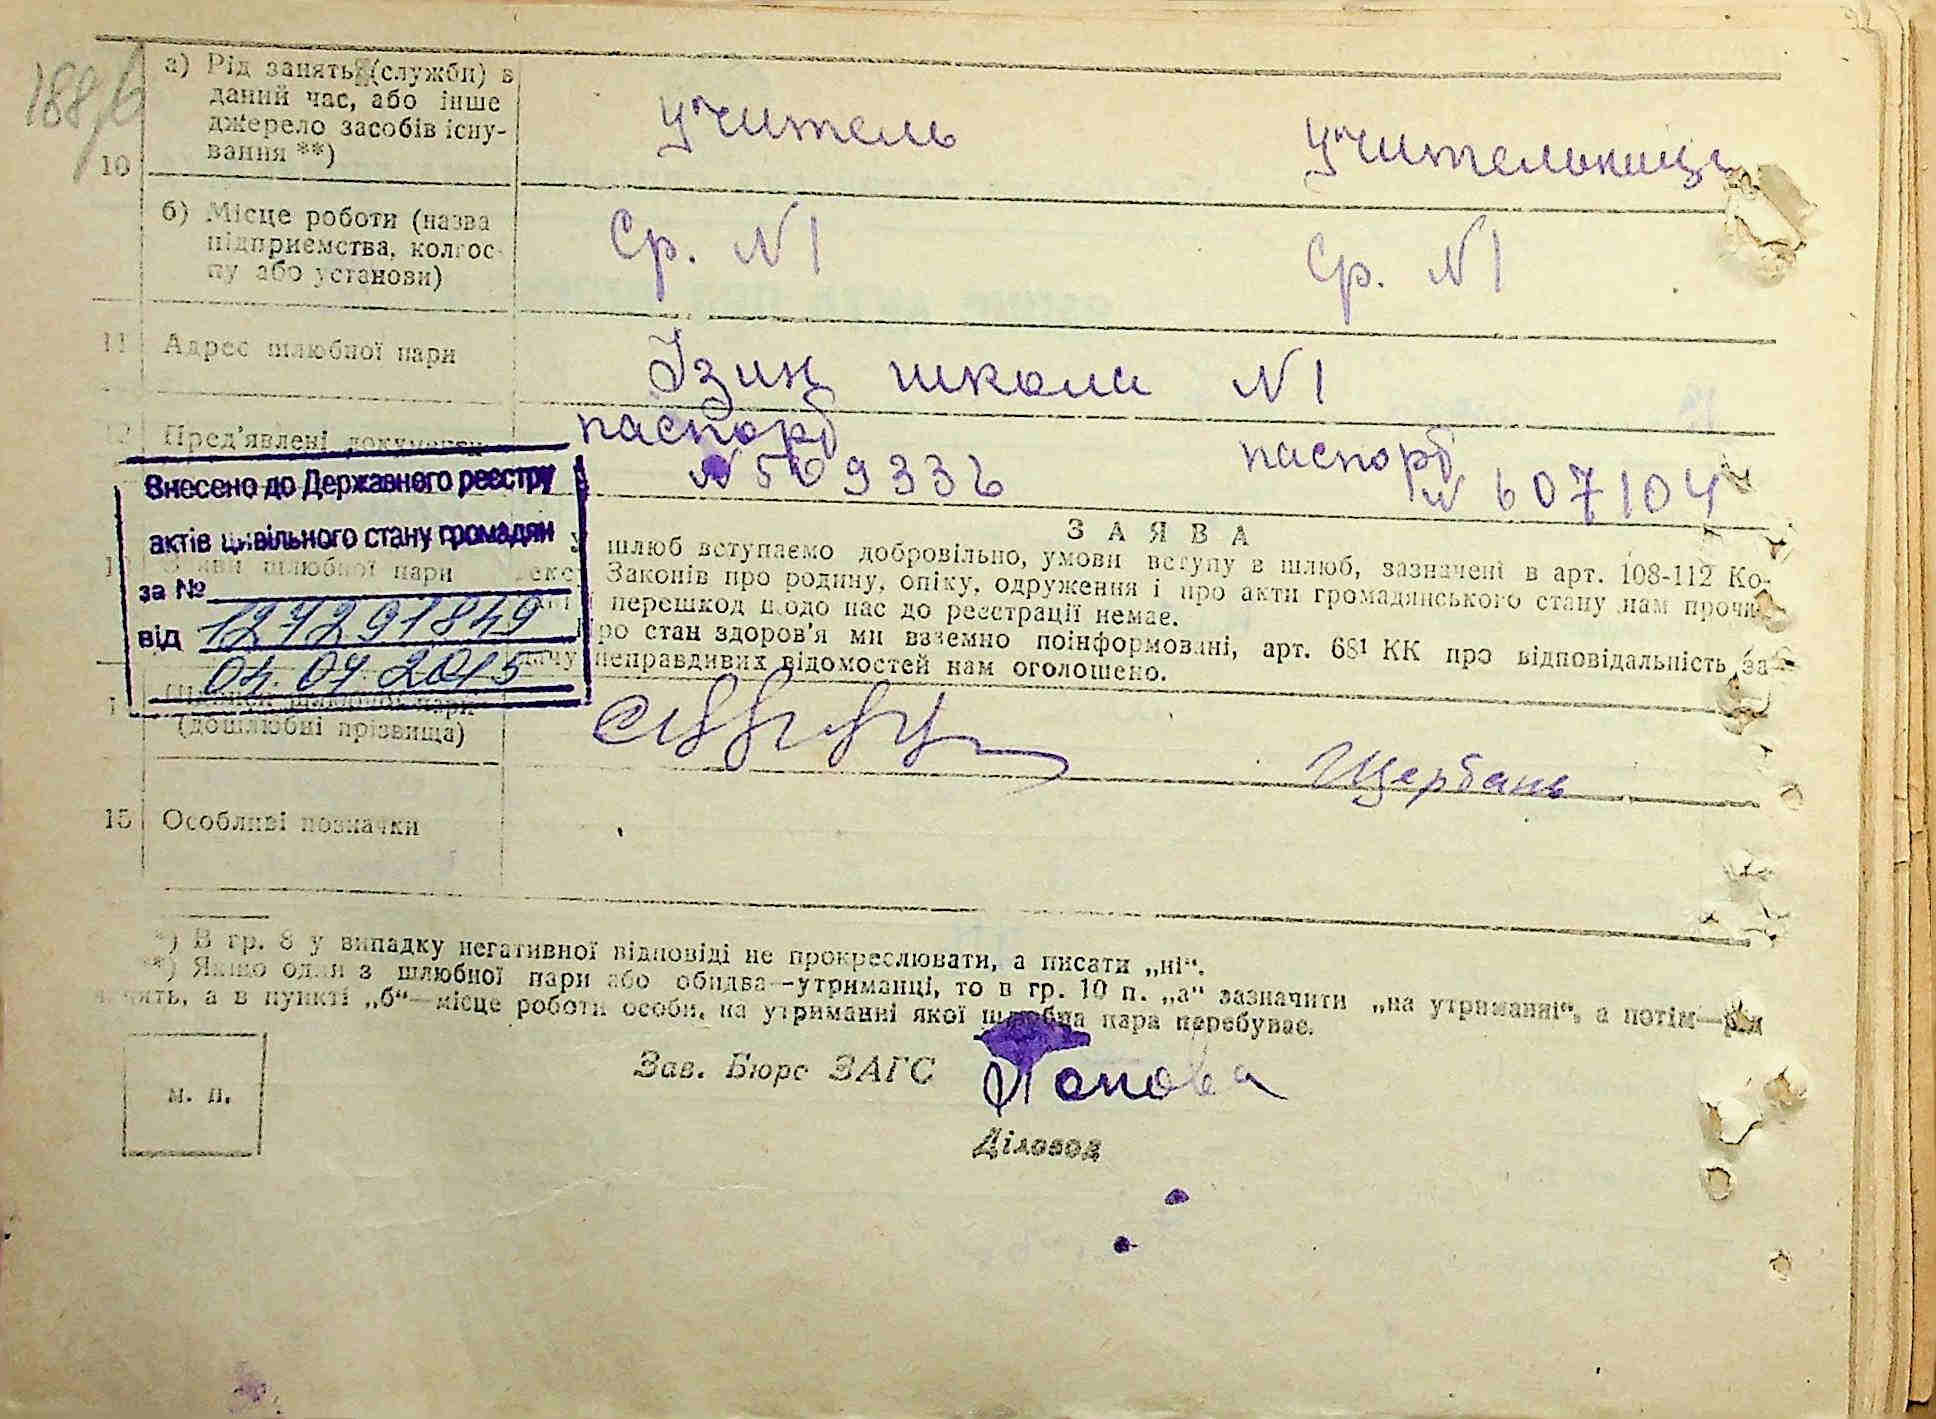 188/6
а) Рід занять (служби) в
даний час, або інше
джерело засобів існу-
вання **)
10
учитель
учительниця
б) Місце роботи (назва
підприємства, колгос-
пу або установи)
Ср. №1
Ср. №1
11 Адрес шлюбної пари
Ізюм школа №1
12 Пред'явлені документи
паспорт
№ 509336
паспорт
№ 607104
Внесено до Державного реєстру
актів цивільного стану громадян
за №
127291849
від
04 04 2015
ЗАЯВА
У шлюб вступаємо добровільно, умови вступу в шлюб, зазначені в арт. 108-112 Ко-
декс Законів про родину, опіку, одруження і про акти громадянського стану нам прочи-
перешкод щодо нас до реєстрації немає.
Про стан здоров'я ми взаємно поінформовані, арт. 68¹ КК про відповідальність за
дачу неправдивих відомостей нам оголошено.
шлюбної пари
(дошлюбні прізвища)
Щербань
15 Особливі позначки
*) В гр. 8 у випадку негативної відповіді не прокреслювати, а писати „ні“.
**) Якщо один з шлюбної пари або обидва—утриманці, то в гр. 10 п. „а“ зазначити „на утриманні“, а потім—рід
занять, а в пункті „б“—місце роботи особи, на утриманні якої шлюбна пара перебуває.
м. п.
Зав. Бюро ЗАГС
Попова
Діловод